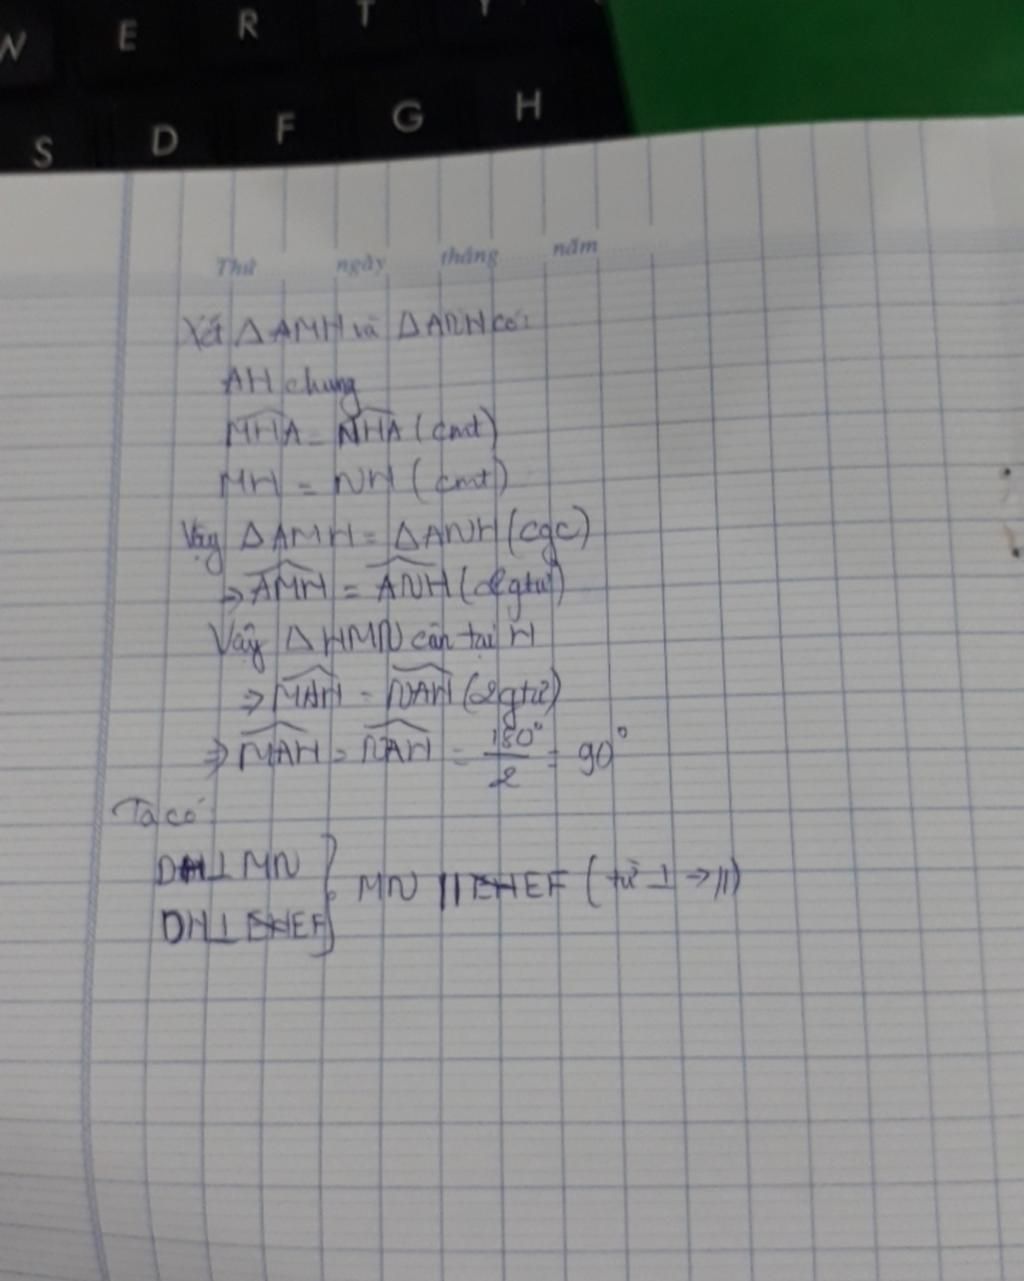 W E R T Y
S D F G H
Thứ ngày tháng năm
Xét Δ AMH và Δ ANH có:
AH chung
MHA = NHA (cmt)
MH = NH (cmt)
Vậy Δ AMH = Δ ANH (cgc)
⇒ AMH = ANH (2gtư)
Vậy Δ HMN cân tại H
⇒ MAH = NAH (2gtư)
⇒ MAH = NAH = 180°/2 = 90°
Ta có
DH ⊥ MN
MN // EF (từ ⊥ → //)
DH ⊥ EF